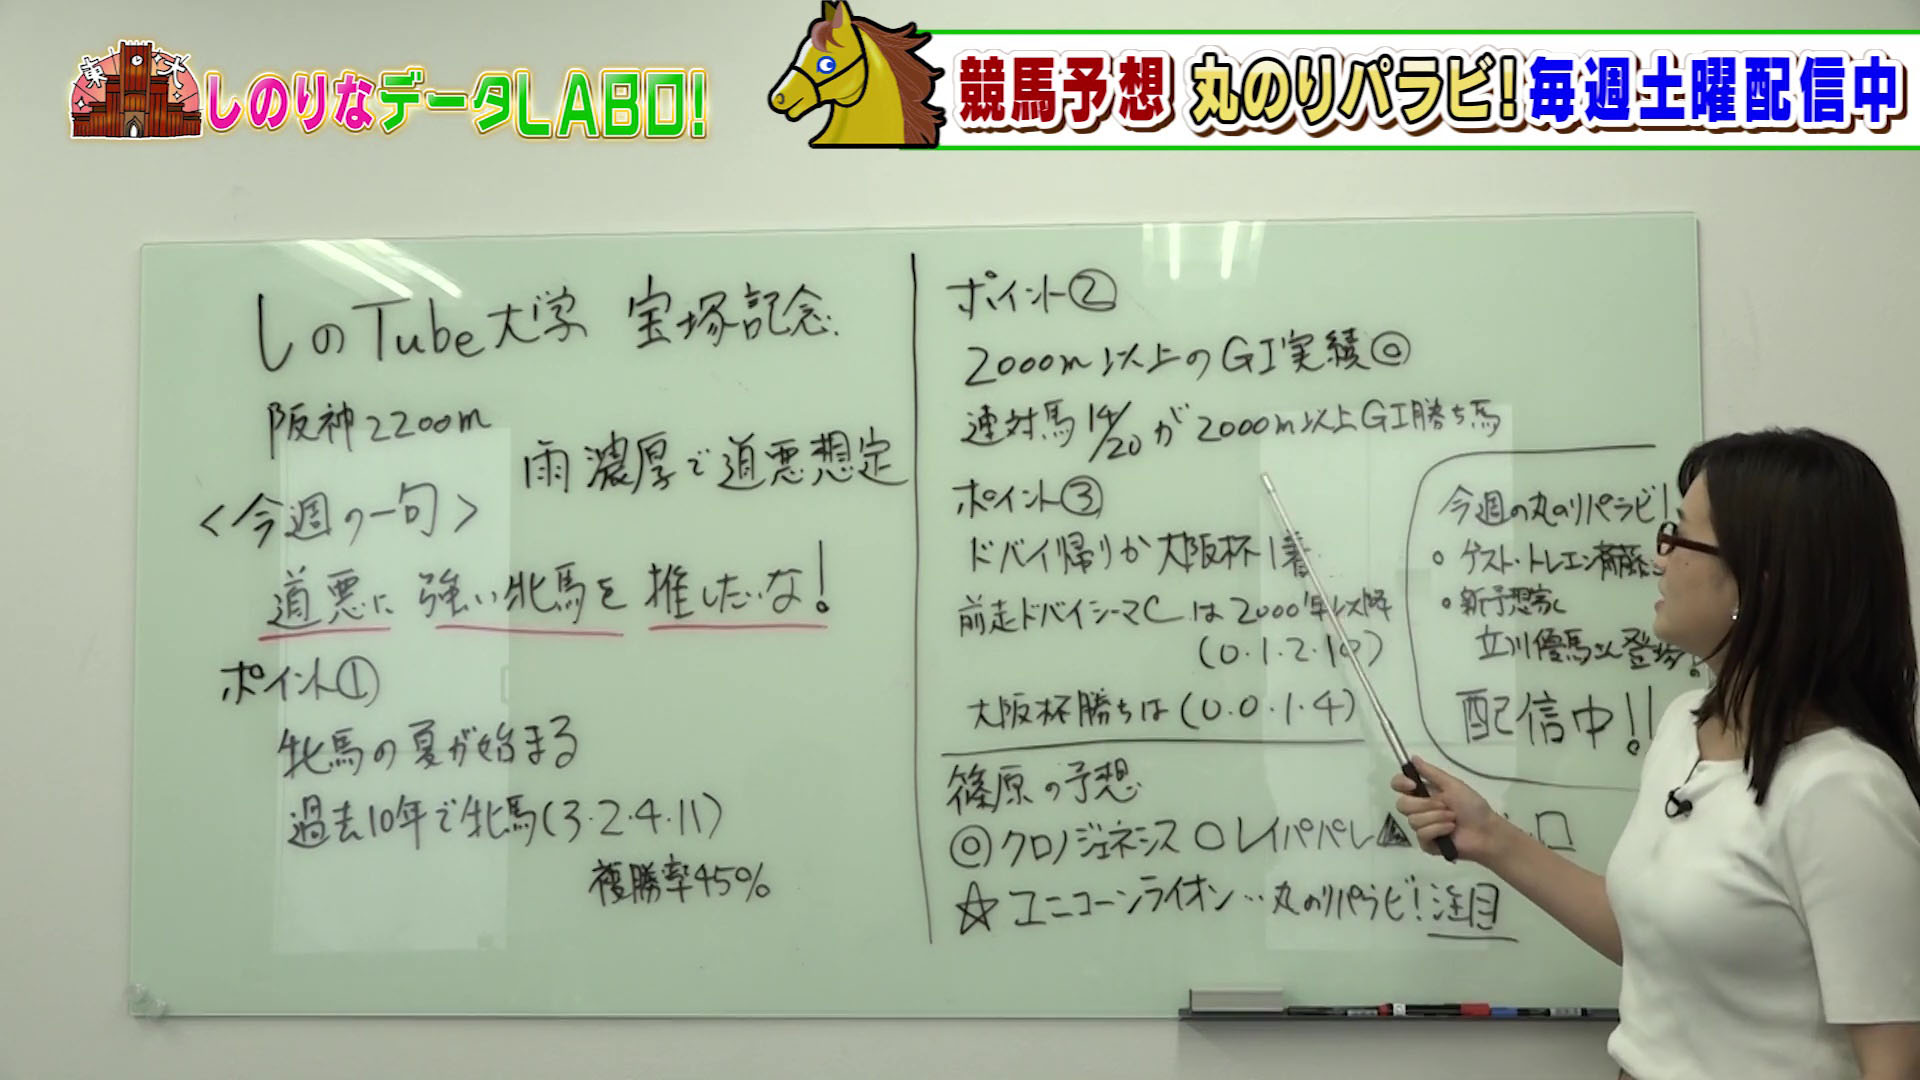 東大
しのりなデータLABO!
競馬予想 丸のりパラビ!毎週土曜配信中
しのTube大学 宝塚記念
阪神2200m
雨濃厚で道悪想定
<今週の一句>
道悪に 強い牝馬を 推したいな!
ポイント①
牝馬の夏が始まる
過去10年で牝馬(3・2・4・11)
複勝率45%
ポイント②
2000m以上のGI実績◎
連対馬14/20が2000m以上GI勝ち馬
ポイント③
ドバイ帰りか大阪杯1着
前走ドバイシーマCは2000年以降
(0・1・2・10)
大阪杯勝ちは(0・0・1・4)
今週の丸のりパラビ!
・ゲスト・トレエン斎藤
・新予想家
立川優馬さん登場!
配信中!!
篠原の予想
◎クロノジェネシス ○レイパパレ▲
☆ユニコーンライオン…丸のりパラビ!注目